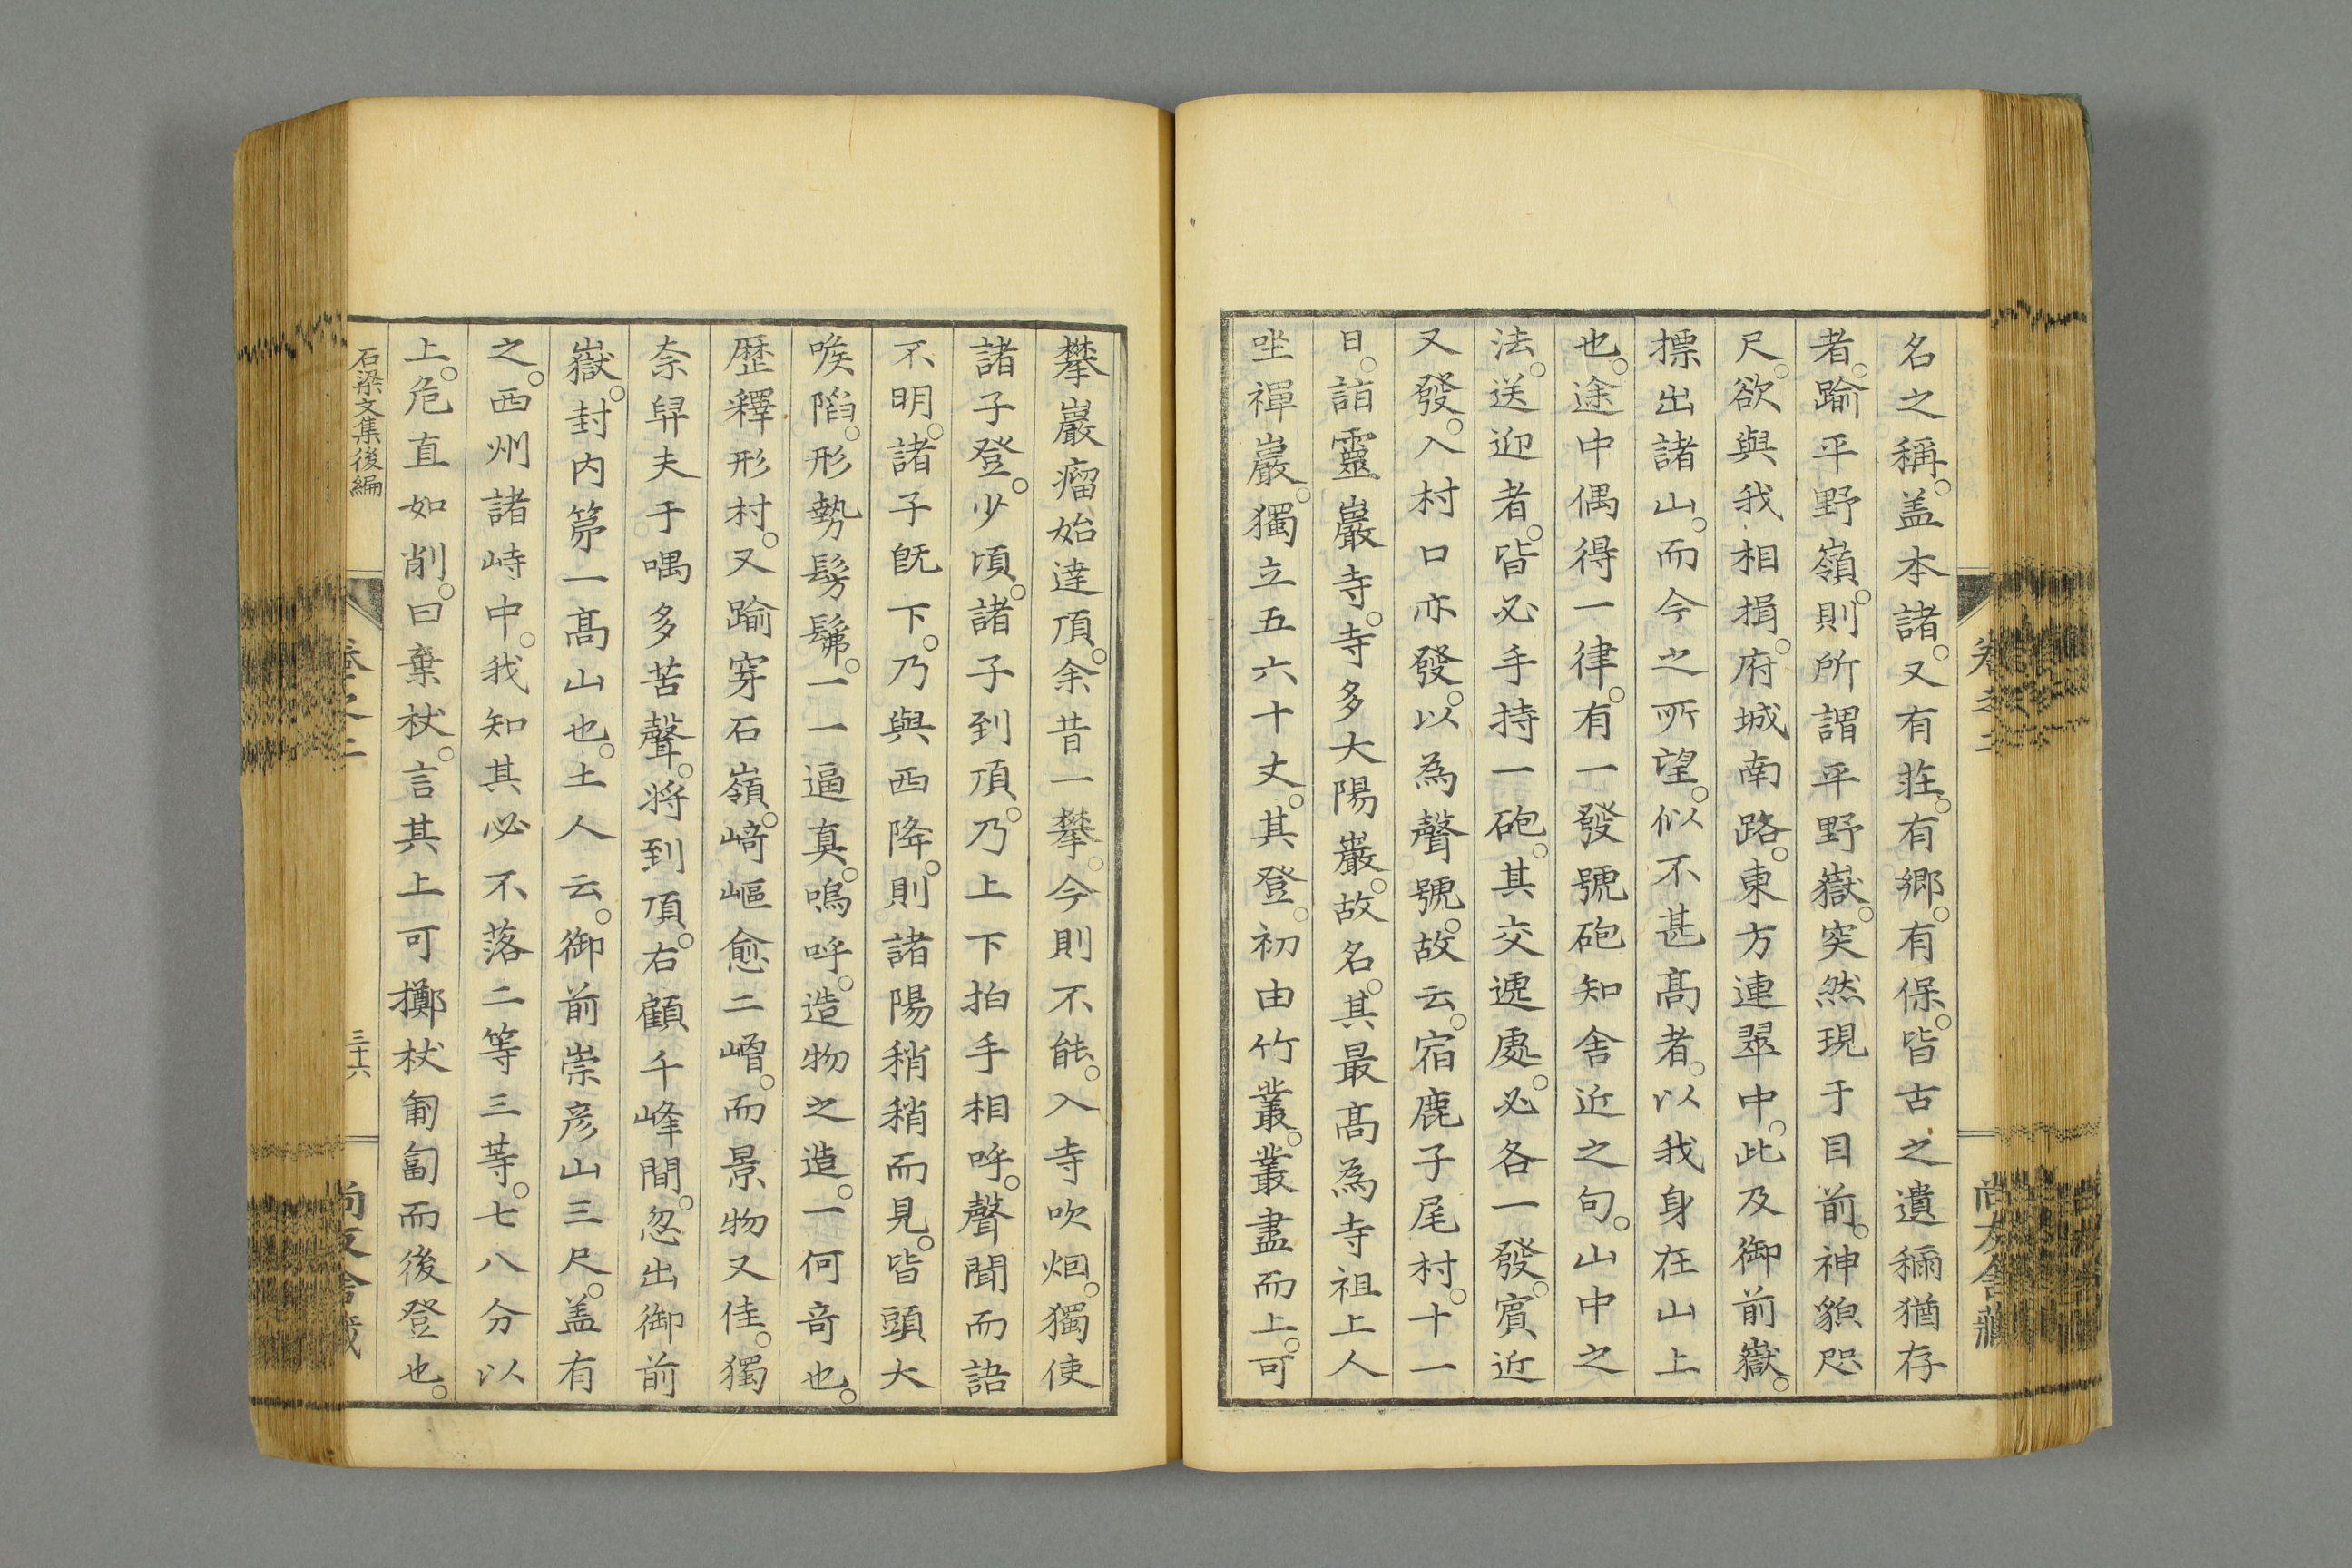 名之稱。盖本諸。又有荘。有郷。有保。皆古之遺穪猶存
者。踰平野嶺。則所謂平野嶽。突然現于目前。神貌咫
尺。欲與我相揖。府城南路。東方連翠中。此及御前嶽。
摽出諸山。而今之所望。似不甚髙者。以我身在山上
也。途中偶得一律。有一發號砲知舎近之句。山中之
法。送迎者。皆必手持一砲。其交遞處。必各一發。賓近
又發。入村口亦發。以為聲號。故云。宿鹿子尾村。十一
日。詣靈巖寺。寺多大陽巌。故名。其最髙為寺祖上人
坐禪巖。獨立五六十丈。其登。初由竹叢。叢盡而上。可
卷之二
尚友舎藏
攀巖瘤始達頂。余昔一攀。今則不能。入寺吹烟。獨使
諸子登。少頃。諸子到頂。乃上下拍手相呼。聲聞而語
不明。諸子旣下。乃與西降。則諸陽稍稍而見。皆頭大
喉䧟。形勢髣髴。一一逼真。嗚呼。造物之造。一何竒也。
歴釋形村。又踰穿石嶺。﨑嶇愈二嶒。而景物又佳。獨
奈舁夫于喁多苦聲。将到頂。右顧千峰間。忽出御前
嶽。封内第一髙山也。土人云。御前崇彦山三尺。盖有
之。西州諸峙中。我知其必不落二等三等。七八分以
上。危直如削。曰棄杖。言其上可擲杖匍匐而後登也。
石梁文集後編
卷之二
三十六
尚友舎藏